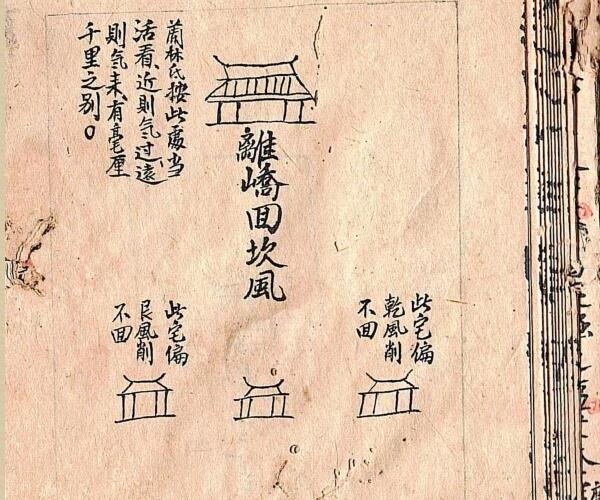 離嶠回坎風
蘭林氏按此處当
活看、近則气过、遠
則气未、有毫厘
千里之别。
此宅偏
乾風削
不回
此宅偏
艮風削
不回